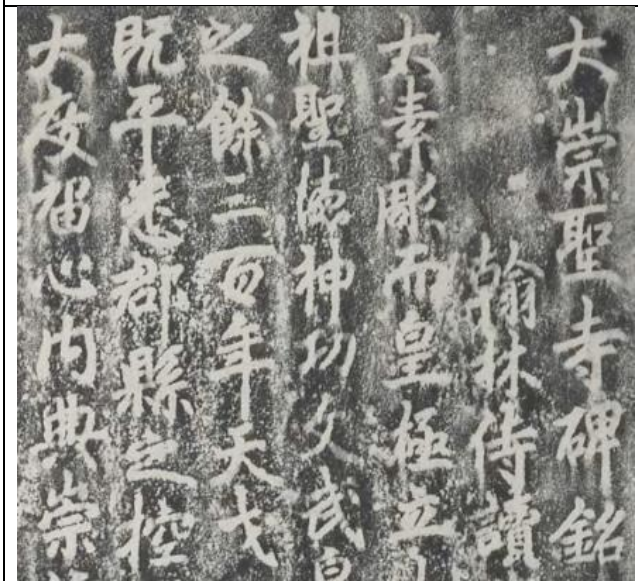 大崇聖寺碑銘
翰林侍讀
大素彫而皇極立
祖聖德神功文武皇
之餘二百年天戈
既平悉郡縣之控
大度留心內典崇